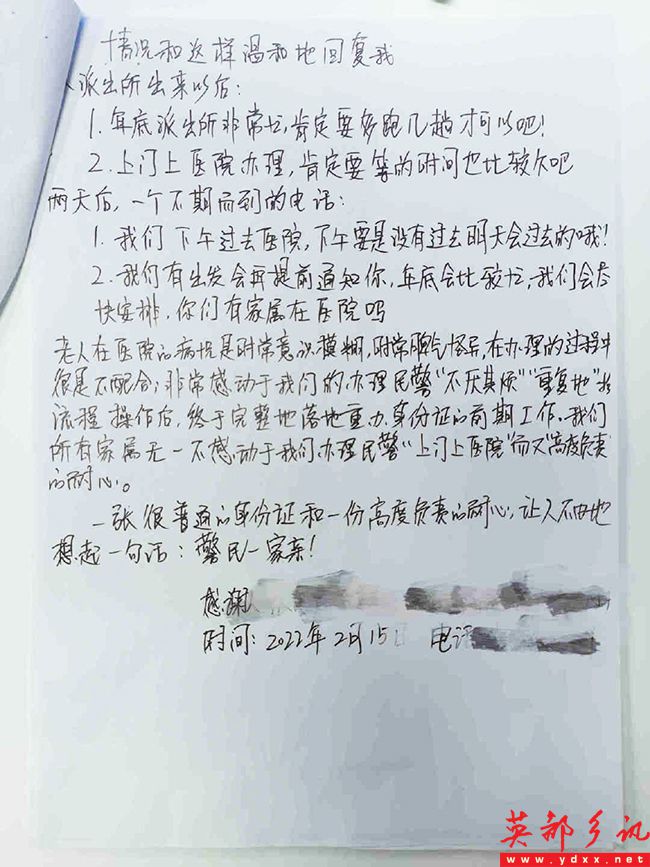 情况和这样温和地回复我
派出所出来以后:
1. 年底派出所非常忙,肯定要多跑几趟才可以吧!
2. 上门上医院办理,肯定要等的时间也比较久吧
两天后,一个不期而到的电话:
1. 我们下午过去医院,下午要是没有过去明天会过去的哦!
2. 我们有出发会再提前通知你,年底会比较忙,我们会尽
快安排,你们有家属在医院吗
老人在医院的病情是时常意识模糊,时常脾气怪异,在办理的过程中
很是不配合;非常感动于我们的办理民警"不厌其烦""重复地"
流程操作后,终于完整地落地重办身份证的前期工作。我们
所有家属无一不感动于我们办理民警"上门上医院"而又"高度负责"
的耐心。
一张很普通的身份证和一份高度负责的耐心,让人不由地
想起一句话:警民一家亲!
感谢
时间:2022年2月15 电话
英都乡讯
www.ydxx.net